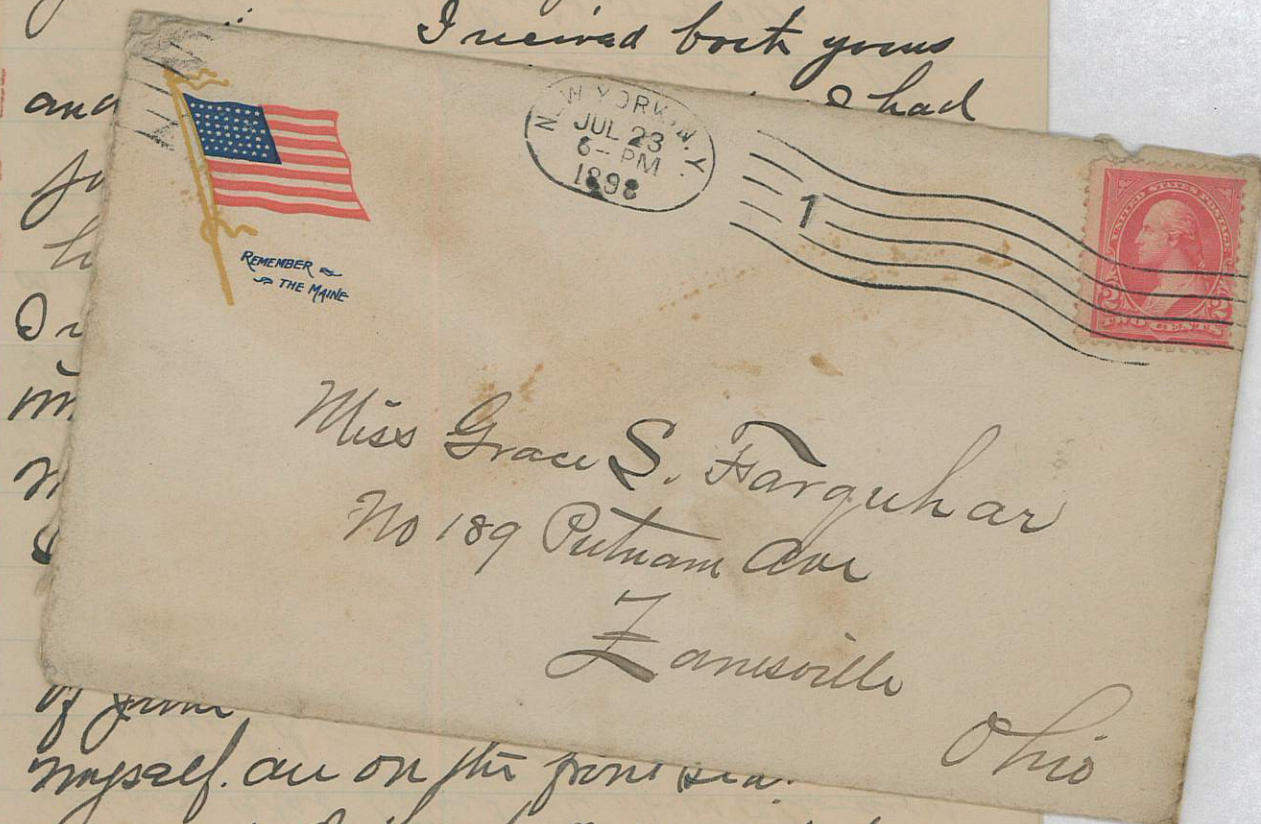 I received both yours
and
I had
NEW YORK, N.Y.
JUL 23
6-PM
1898
1
UNITED STATES POSTAGE
2 2
TWO CENTS
REMEMBER
THE MAINE
Miss Grace S. Farquhar
No 189 Putnam Ave
Zanesville
Ohio
of
myself. are on the front